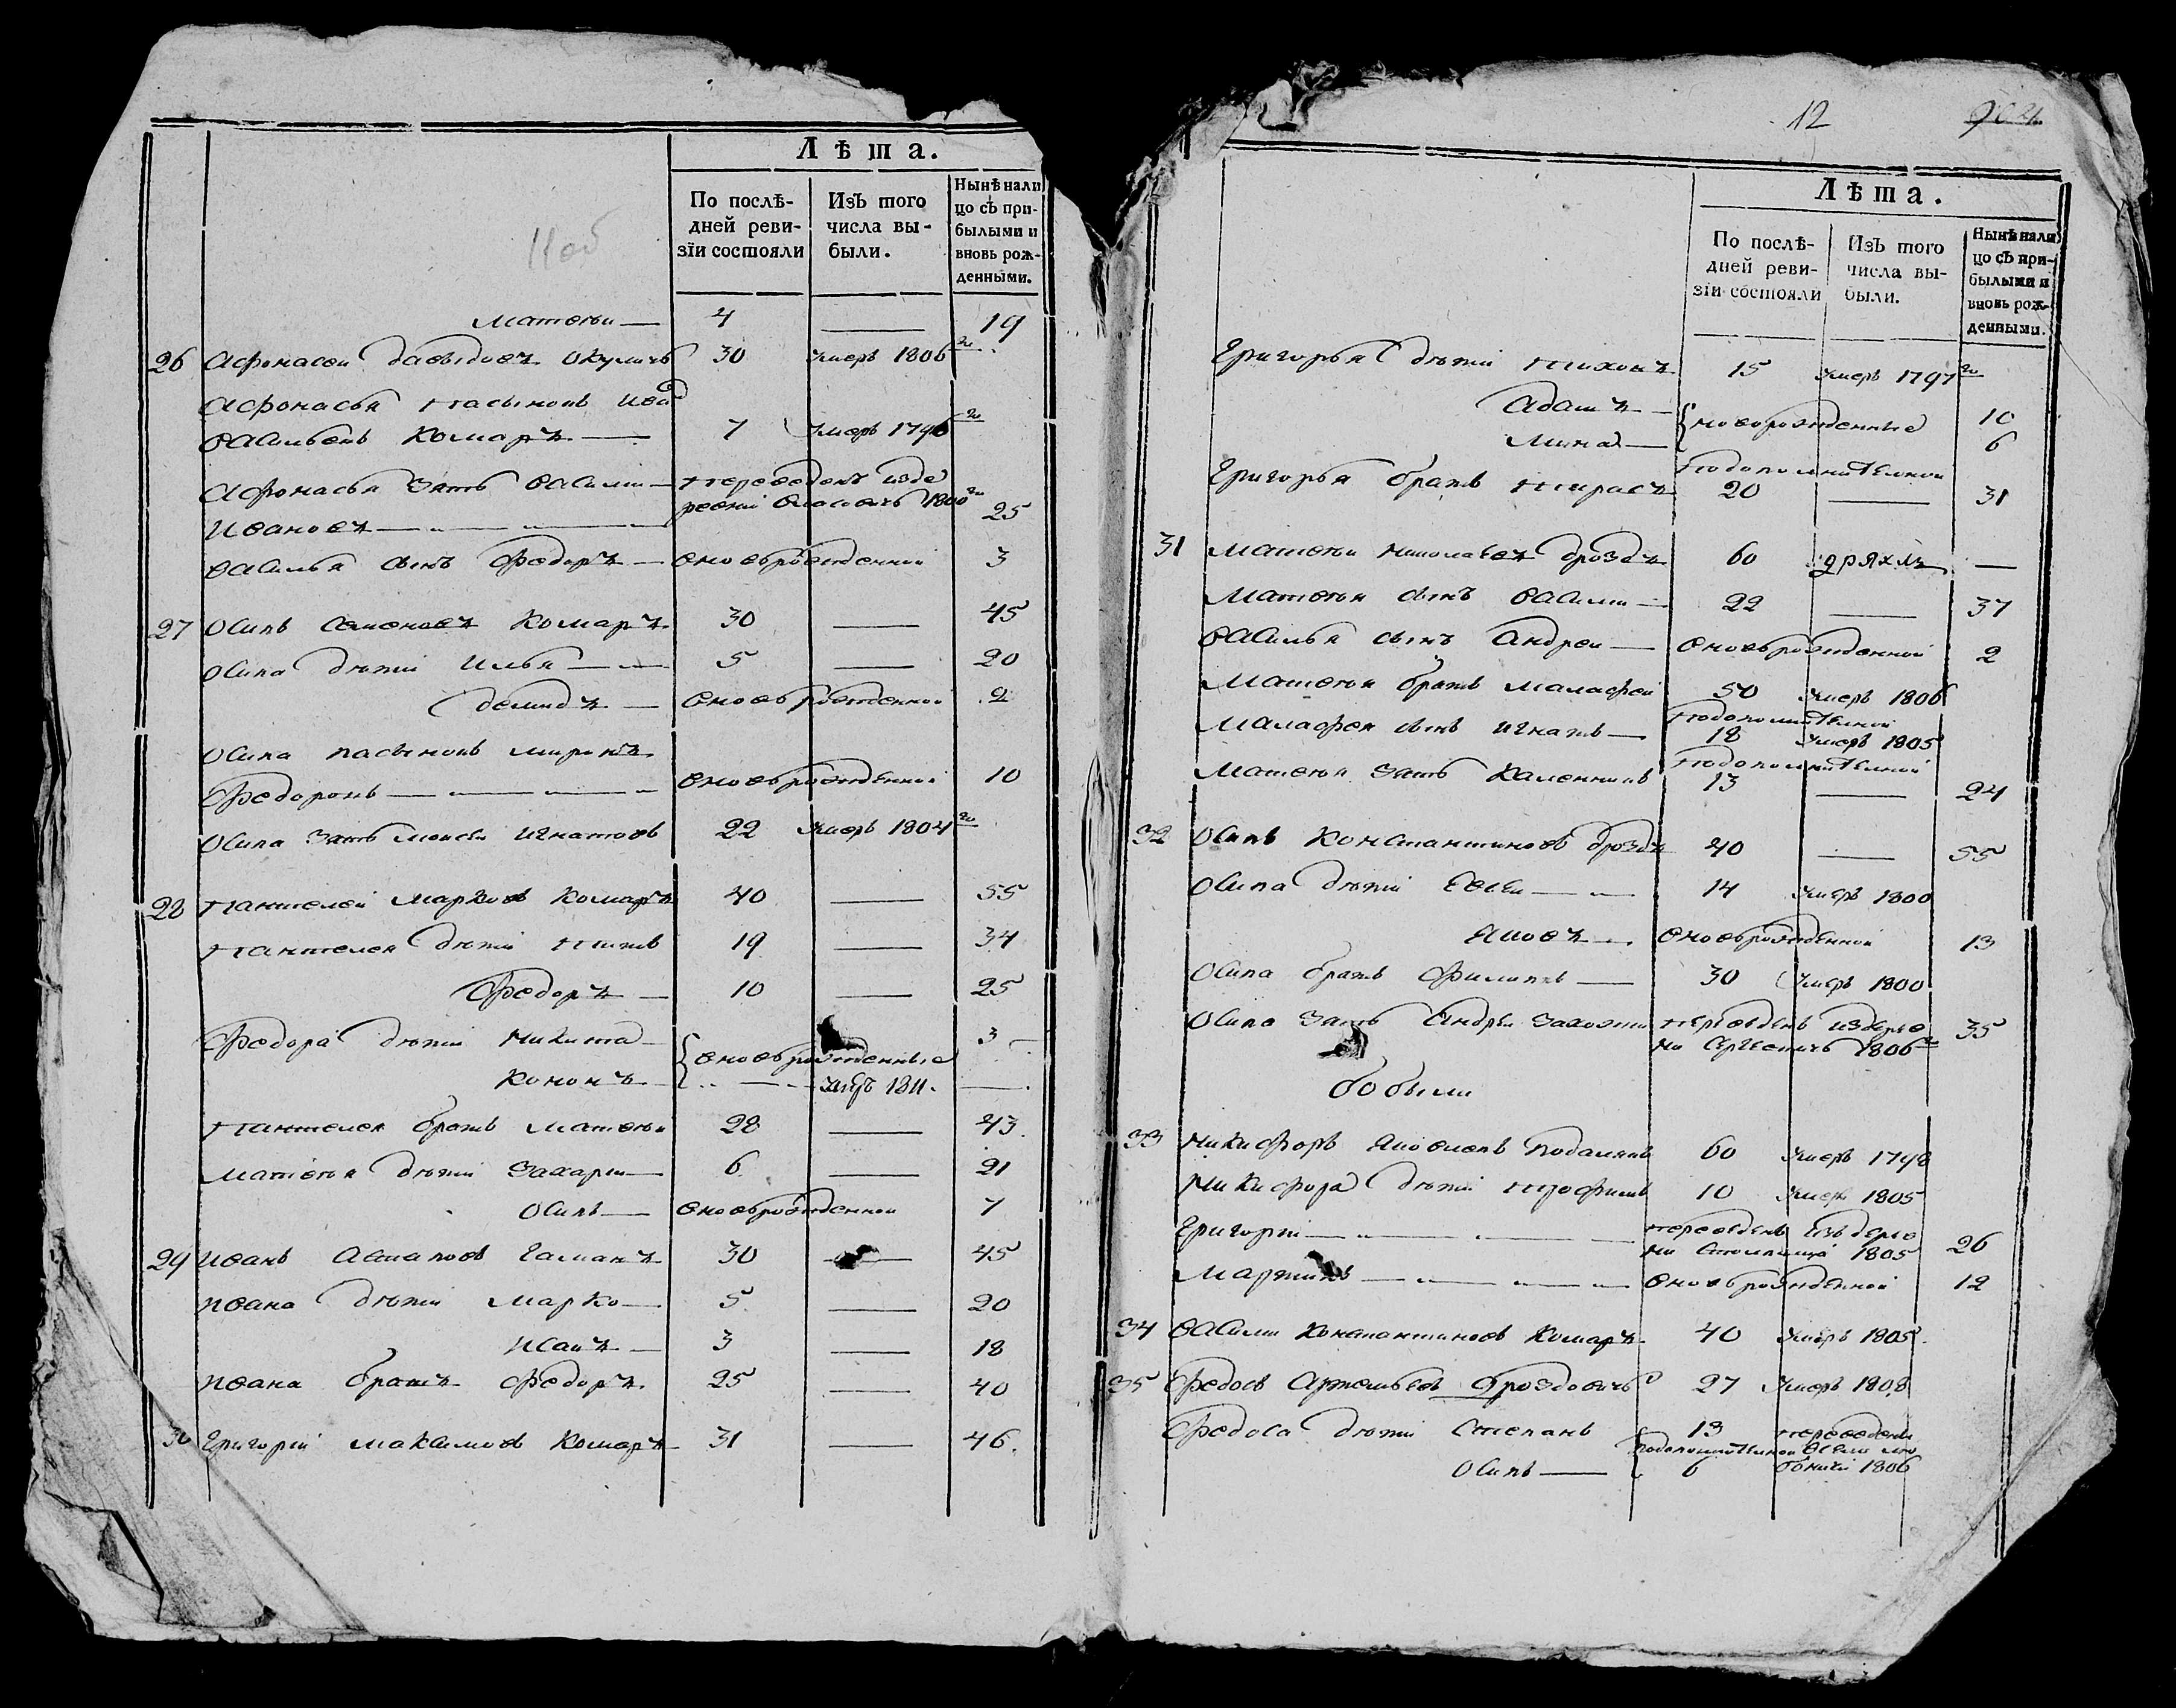 11об
Лѣта.
По послѣ-
дней реви-
зіи состояли
Изъ того
числа вы-
были.
Нынѣ нали
цо съ при-
былыми и
вновь рож-
денными.
Матвѣи — 4 — 19
26 Афонасеи Давыдовъ Окуличъ 30 умеръ 1806го
Афонасья пасынокъ Ива
Васильевъ Комаръ — 7 умеръ 1796го
Афонасья зять Василии — переведенъ изде
Ивановъ — ревни 1800го 25
Василья сынъ Федоръ — вновьрожденной 3
27 Осипъ Семеновъ Комаръ 30 — 45
Осипа дѣти Илья — 5 — 20
Демидъ — вновьрожденной 2
Осипа пасынокъ Миронъ
Федоровъ — вновьрожденной 10
Осипа зять Моисеи Игнатовъ 22 умеръ 1804го
28 Пантелеи Марковъ Комаръ 40 — 55
Пантелея дѣти Титъ 19 — 34
Федоръ — 10 — 25
Федора дѣти Никита — вновьрожденные 3
Кононъ — умеръ 1811. —
Пантелея братъ Матвѣи 28 — 43.
Матвѣя дѣти Захаріи — 6 — 21
Осипъ — вновьрожденнои 7
29 Иванъ Астаповъ Гаманъ 30 — 45
Ивана дѣти Марко — 5 — 20
Исакъ — 3 — 18
Ивана братъ Федоръ 25 — 40
30 Григории Максимовъ Комаръ 31 — 46.
12
Лѣта.
По послѣ-
дней реви-
зіи состояли
Изъ того
числа вы-
были.
Нынѣ нали
цо съ при-
былыми и
вновь рож-
денными.
Григорья дѣти Тихонъ 15 умеръ 1797го
Адамъ — новорожденные 10
Мина — 6
Григорья братъ Тарасъ подополнителной 20 — 31
31 Матвѣи Николаевъ Дроздъ 60 дряхлъ —
Матвѣя сынъ Василии — 22 — 37
Василья сынъ Андреи — вновьрожденной 2
Матвѣя братъ Малафеи 50 умеръ 1806
Малафея сынъ Игнатъ — подополнителной 18 умеръ 1805
Матвѣя зять Калинникъ подополнителной 13 — 24
32 Осипъ Константиновъ Дроздъ 40 — 55
Осипа дѣти Евсеи — 14 умеръ 1800
Яковъ — вновьрожденнои 13
Осипа братъ Филипъ — 30 умеръ 1800
Осипа зять Андреи переведенъ издерев
ни 1806го 35
бобыли
33 Никифоръ Яковлевъ 60 умеръ 1798
Никифора дѣти Трофимъ 10 умеръ 1805
Григории — переведенъ изъ дерев
ни 1805 26
Мартинъ — вновьрожденной 12
34 Василии Константиновъ Комаръ 40 умеръ 1805.
35 Федосъ Артемьевъ Дроздовичъ 27 умеръ 1808
Федоса дѣти Степанъ 13 переведены
подополнителной
Осипъ — 6 1806